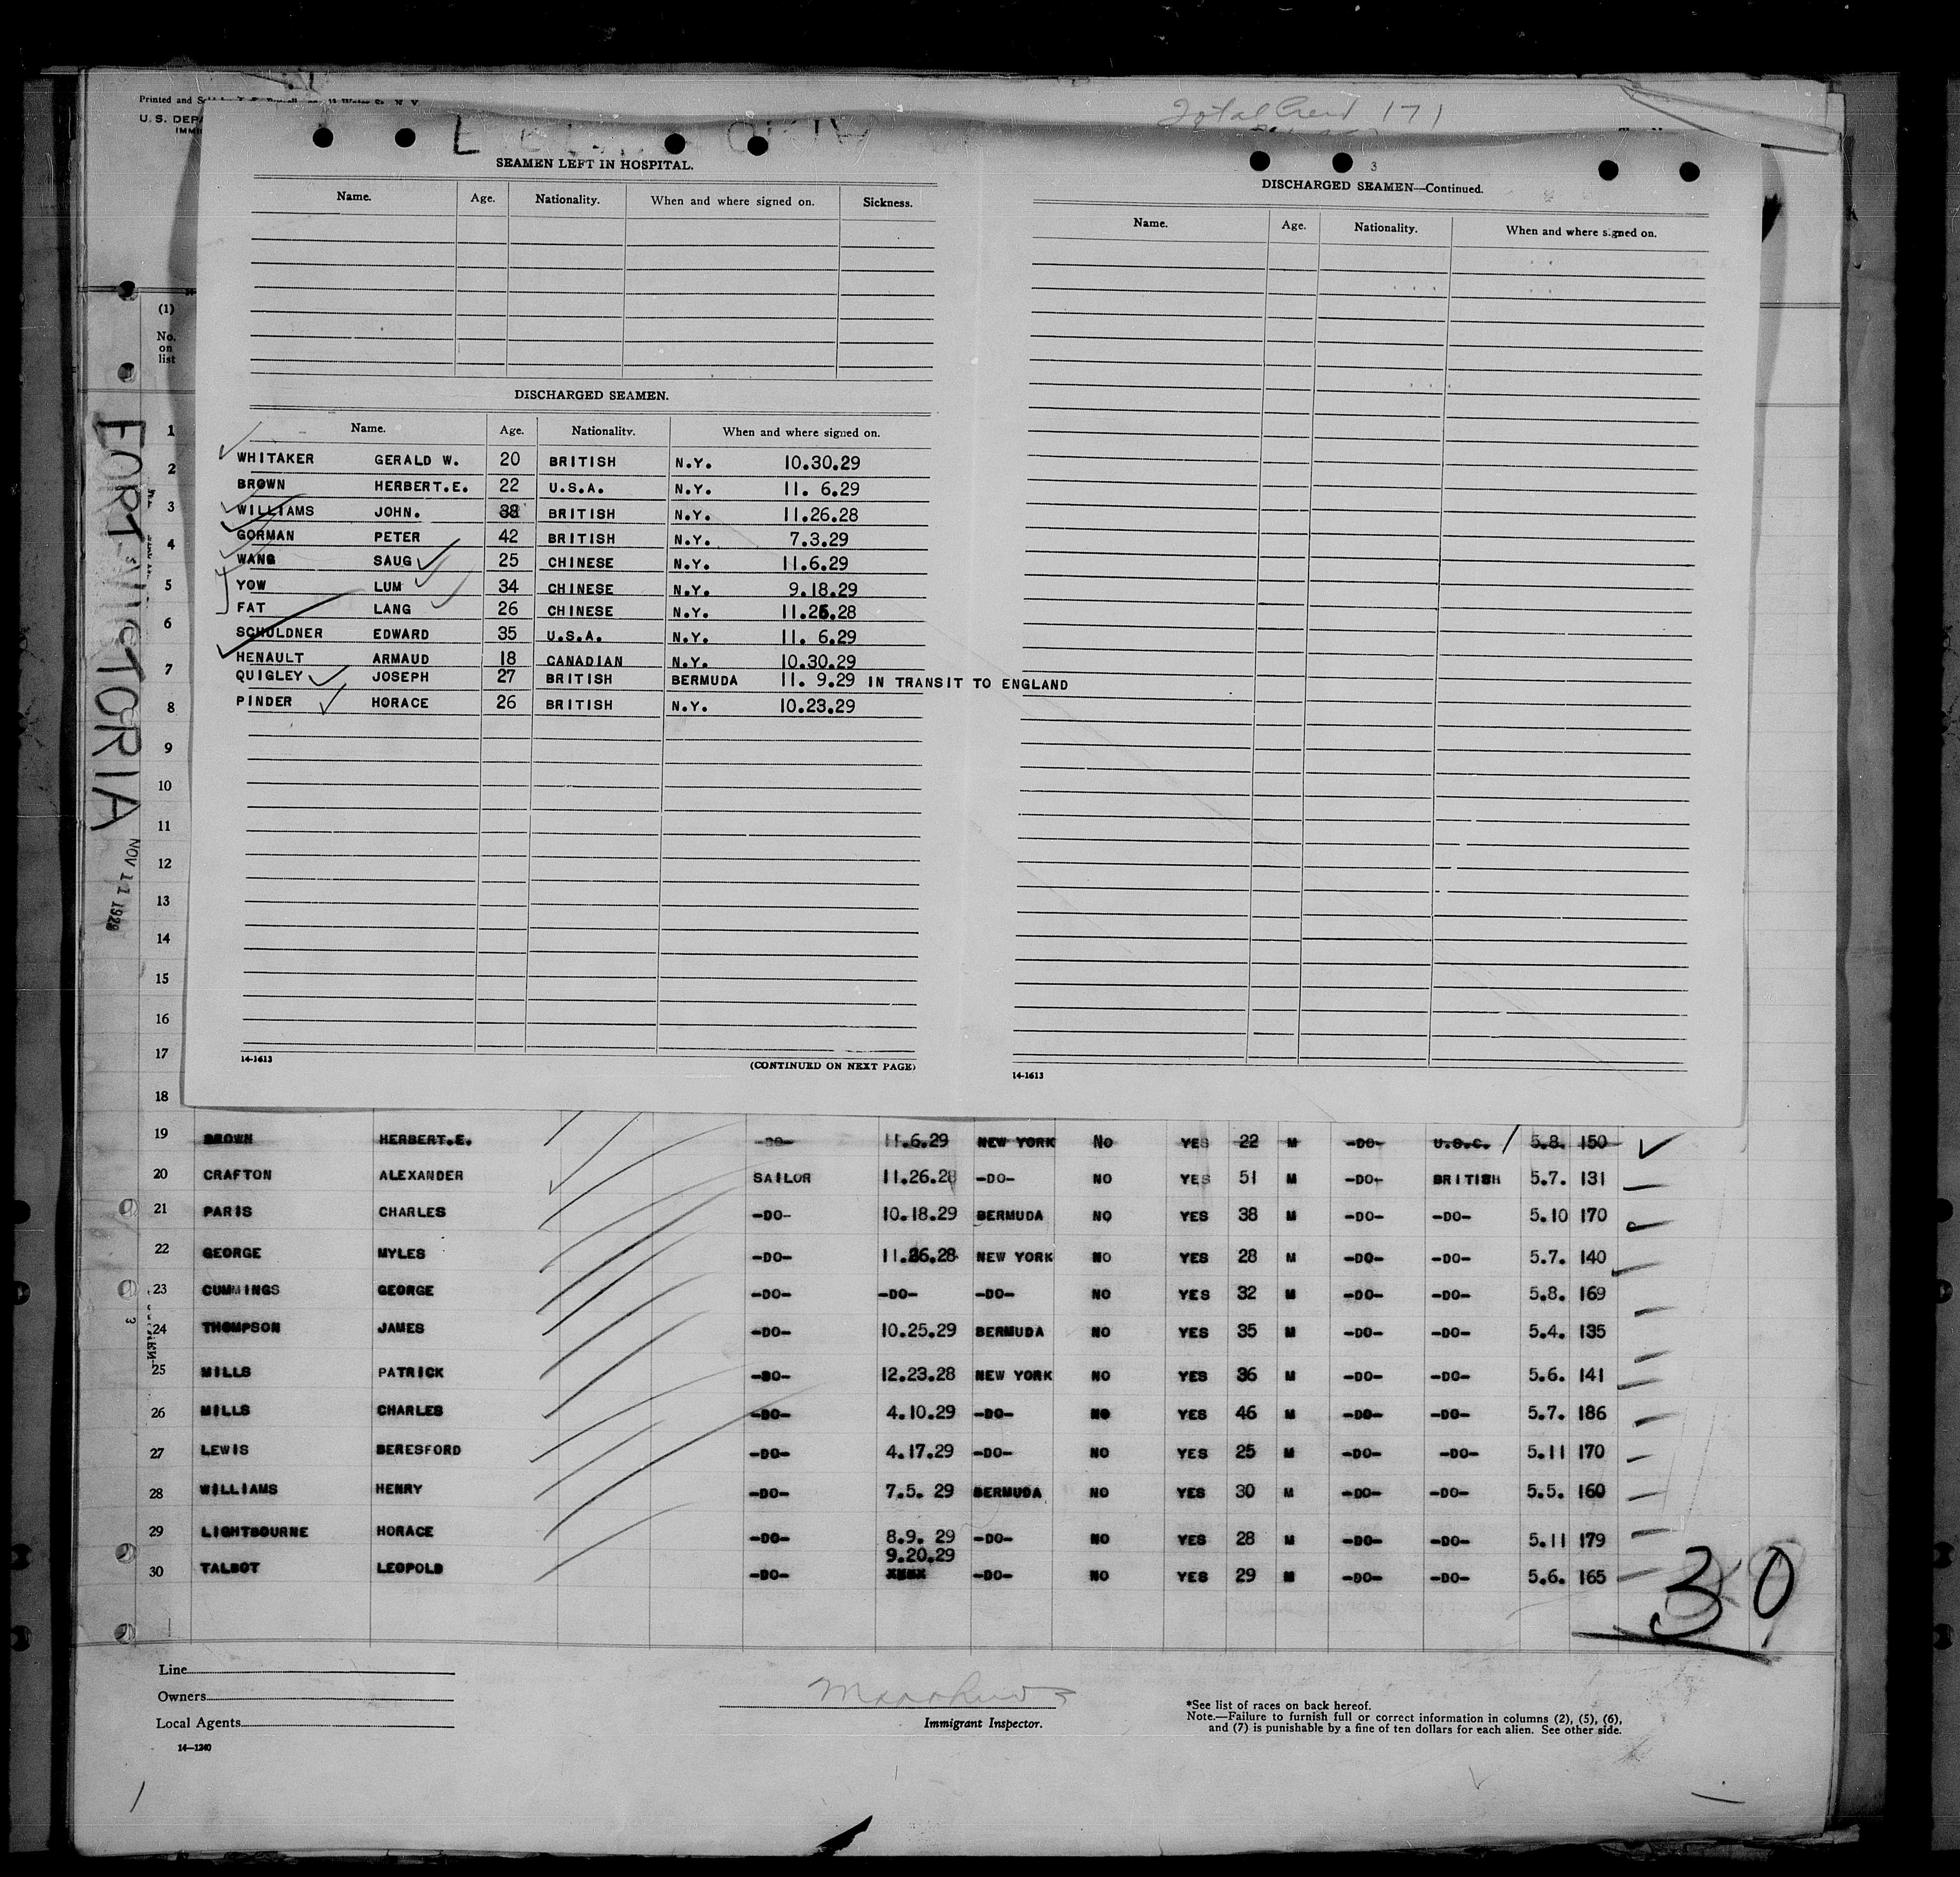 Printed and
Total Crew 171
U. S. DEPA
IMMI
SEAMEN LEFT IN HOSPITAL.
Name. Age. Nationality. When and where signed on. Sickness.
DISCHARGED SEAMEN.
Name. Age. Nationality. When and where signed on.
WHITAKER GERALD W. 20 BRITISH N.Y. 10.30.29
BROWN HERBERT.E. 22 U.S.A. N.Y. 11. 6.29
WILLIAMS JOHN. 38 BRITISH N.Y. 11.26.28
GORMAN PETER 42 BRITISH N.Y. 7.3.29
WANG SAUG 25 CHINESE N.Y. 11.6.29
YOW LUM 34 CHINESE N.Y. 9.18.29
FAT LANG 26 CHINESE N.Y. 11.26.28
SCHULDNER EDWARD 35 U.S.A. N.Y. 11. 6.29
HENAULT ARMAUD 18 CANADIAN N.Y. 10.30.29
QUIGLEY JOSEPH 27 BRITISH BERMUDA 11. 9.29 IN TRANSIT TO ENGLAND
PINDER HORACE 26 BRITISH N.Y. 10.23.29
14-1613 (CONTINUED ON NEXT PAGE)
3
DISCHARGED SEAMEN—Continued.
Name. Age. Nationality. When and where signed on.
14-1613
(1)
No.
on
list
1
2
3
4
5
6
7
8
9
10
11
12
13
14
15
16
17
18
FORT VICTORIA
NOV 11 1929
19 BROWN HERBERT.E. -DO- 11.6.29 NEW YORK NO YES 22 M -DO- U.S.C. 5.8. 150
20 CRAFTON ALEXANDER SAILOR 11.26.28 -DO- NO YES 51 M -DO- BRITISH 5.7. 131
21 PARIS CHARLES -DO- 10.18.29 BERMUDA NO YES 38 M -DO- -DO- 5.10 170
22 GEORGE MYLES -DO- 11.26.28 NEW YORK NO YES 28 M -DO- -DO- 5.7. 140
23 CUMMINGS GEORGE -DO- -DO- -DO- NO YES 32 M -DO- -DO- 5.8. 169
24 THOMPSON JAMES -DO- 10.25.29 BERMUDA NO YES 35 M -DO- -DO- 5.4. 135
25 MILLS PATRICK -DO- 12.23.28 NEW YORK NO YES 36 M -DO- -DO- 5.6. 141
26 MILLS CHARLES -DO- 4.10.29 -DO- NO YES 46 M -DO- -DO- 5.7. 186
27 LEWIS BERESFORD -DO- 4.17.29 -DO- NO YES 25 M -DO- -DO- 5.11 170
28 WILLIAMS HENRY -DO- 7.5. 29 BERMUDA NO YES 30 M -DO- -DO- 5.5. 160
29 LIGHTBOURNE HORACE -DO- 8.9. 29 -DO- NO YES 28 M -DO- -DO- 5.11 179
9.20.29
30 TALBOT LEOPOLD -DO- XXXX -DO- NO YES 29 M -DO- -DO- 5.6. 165
30
Line
Owners
Local Agents
14—1240
Immigrant Inspector.
*See list of races on back hereof.
Note.—Failure to furnish full or correct information in columns (2), (5), (6),
and (7) is punishable by a fine of ten dollars for each alien. See other side.